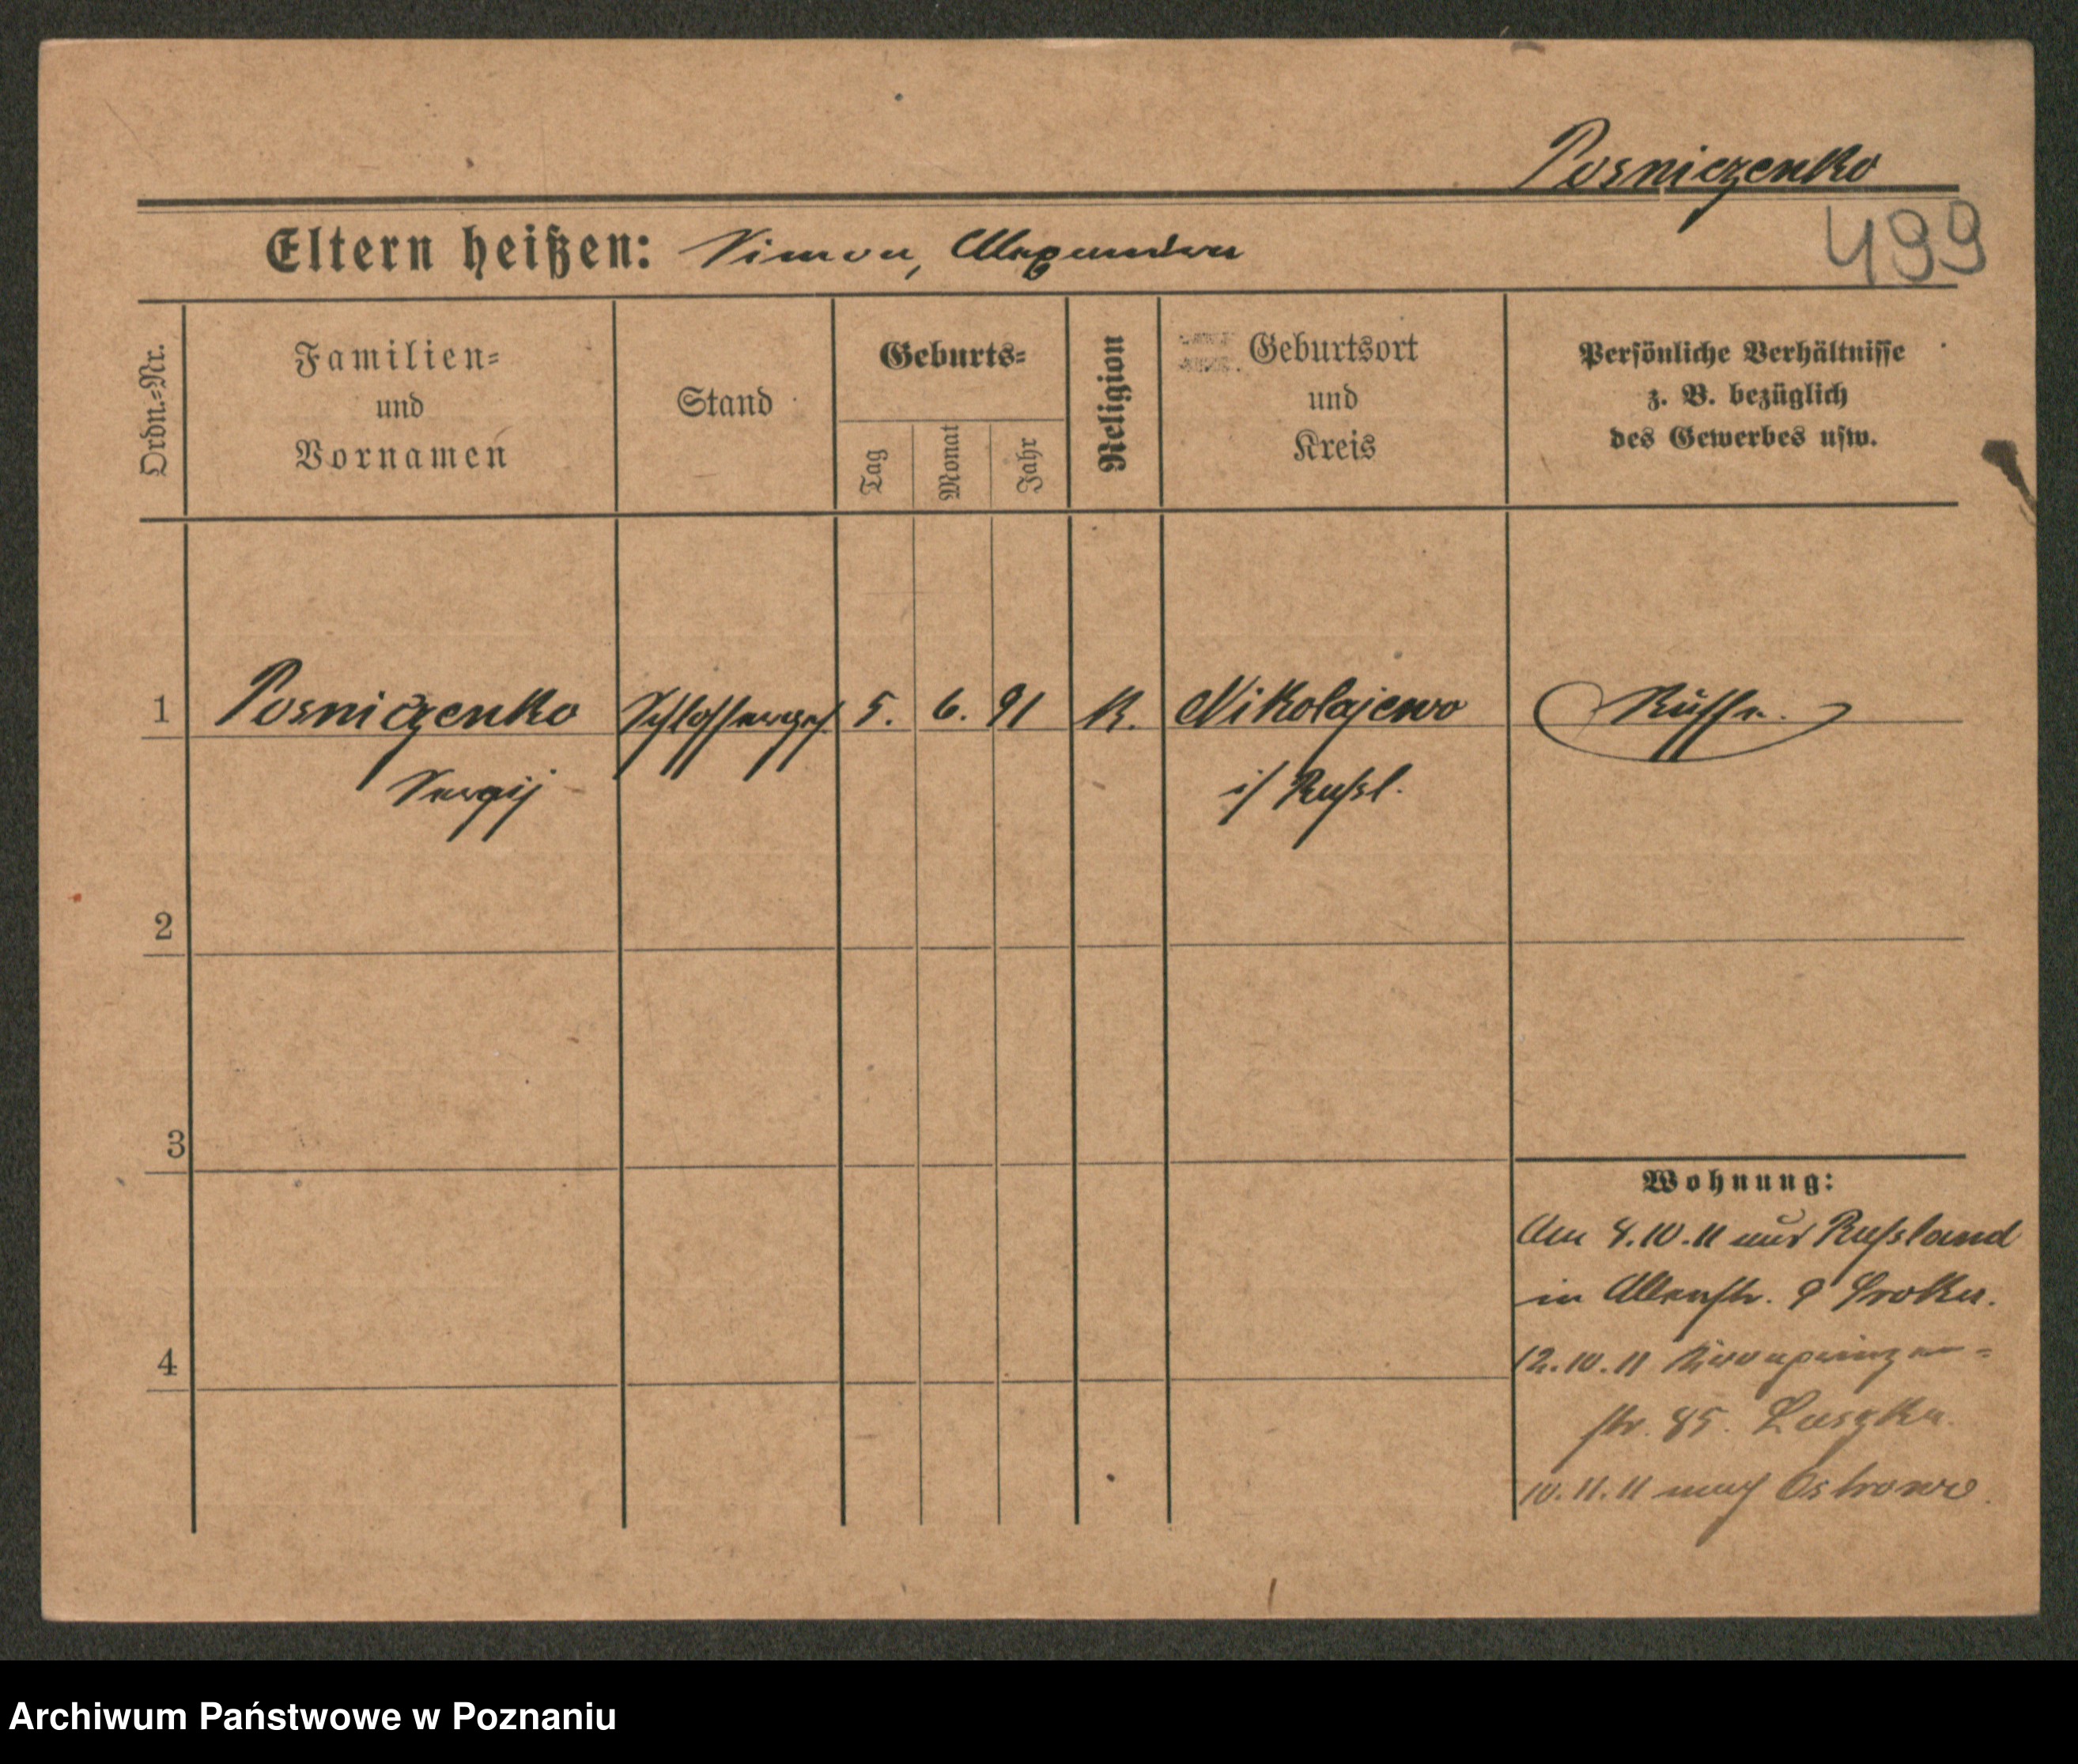 Posniczenko
499
Eltern heißen: Simon, Alexandra
Ordn.-Nr.
Familien-
und
Vornamen
Stand
Geburts-
Tag
Monat
Jahr
Religion
Geburtsort
und
Kreis
Persönliche Verhältnisse
z. B. bezüglich
des Gewerbes usw.
1 Posniczenko Schlosserges 5. 6. 91 K. Nikolajewo Russe.
Sergij i/ Russl.
2
3
4
Wohnung:
Am 4.10.11 aus Russland
in Allerstr. 9 Sroka.
12.10.11 Kronprinzen-
str. 85.
10.11.11 nach Ostrowo.
Archiwum Państwowe w Poznaniu